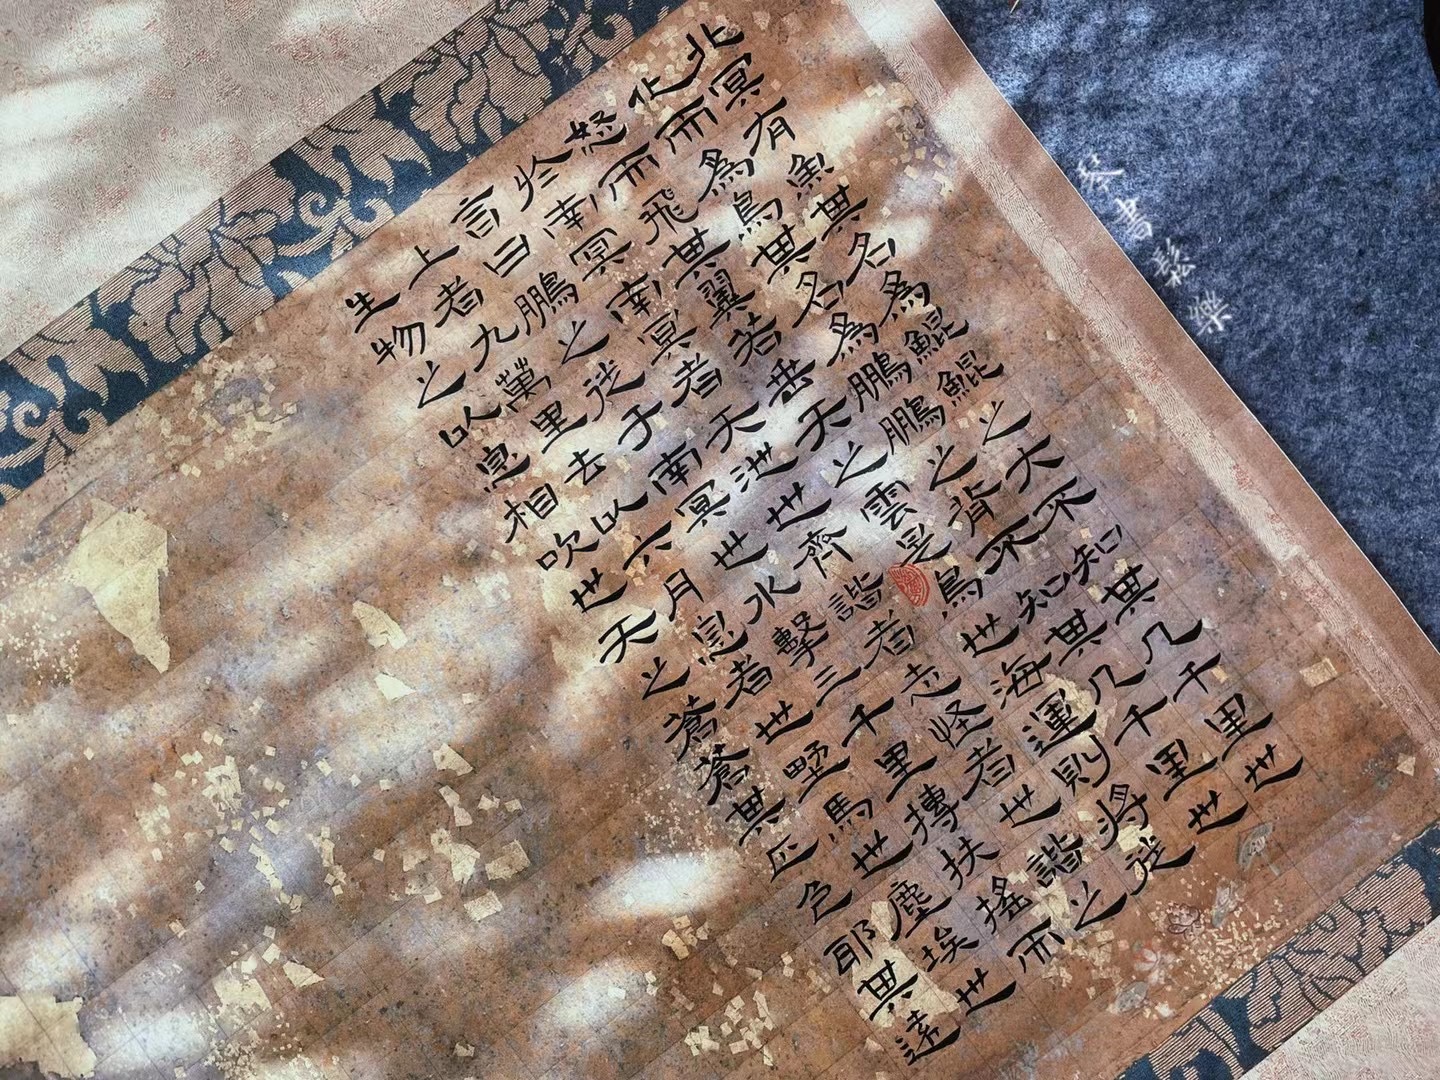 北冥有魚其名為鯤鯤之大不知其几千里也
化而為鳥其名為鵬鵬之背不知其几千里也
怒而飛其翼若垂天之雲是鳥也海運則将徙
於南冥南冥者天池也齊諧者志怪者也諧之
言曰鵬之徙于南冥也水擊三千里摶扶搖而
上者九萬里去以六月息者也野馬也塵埃也
生物之以息相吹也天之蒼蒼其正色耶其遠
書鬆樂